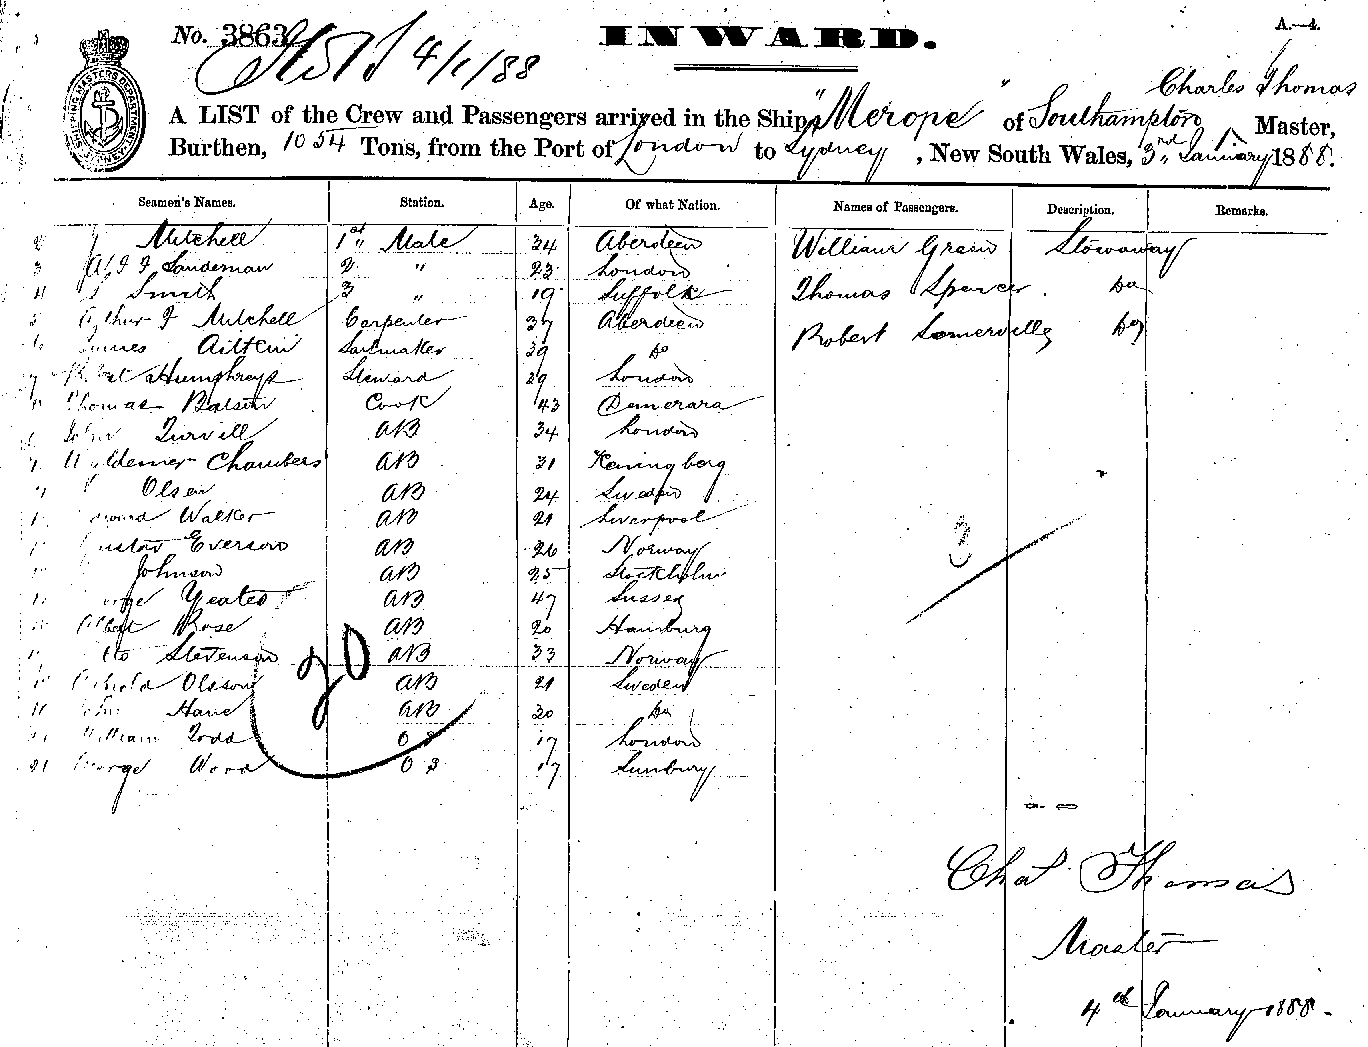 A.—4.
No. 3863
4/1/88
INWARD.
SHIPPING MASTERS DEPARTMENT
Charles Thomas
A LIST of the Crew and Passengers arrived in the Ship "Merope" of Southampton, Master,
Burthen, 1054 Tons, from the Port of London to Sydney, New South Wales, 3rd January 1888.
Seamen's Names. Station. Age. Of what Nation. Names of Passengers. Description. Remarks.
2 Mitchell 1st Mate 34 Aberdeen William Green Stowaway
3 Sandeman 2 " 23 London
4 Smith 3 " 19 Suffolk Thomas Spencer Do
5 Arthur J Mitchell Carpenter 37 Aberdeen Robert Somerville Do
6 James Aitken Sailmaker 39 Do
7 Humphreys Steward 29 London
Thomas Batson Cook 43 Demerara
John Turvill AB 34 London
Chambers AB 31 Keningberg
Olsen AB 24 Sweden
Walker AB 21 Liverpool
Everson AB 26 Norway
Johnson AB 25 Stockholm
Yeates AB 47 Sussex
Albert Rose AB 20 Hamburg
Stevenson AB 33 Norway
Olsson AB 21 Sweden
AB 30 Do
William Todd OS 17 London
21 George Wood OS 17 Sunbury
20
3
Chas Thomas
Master
4th January 1888.